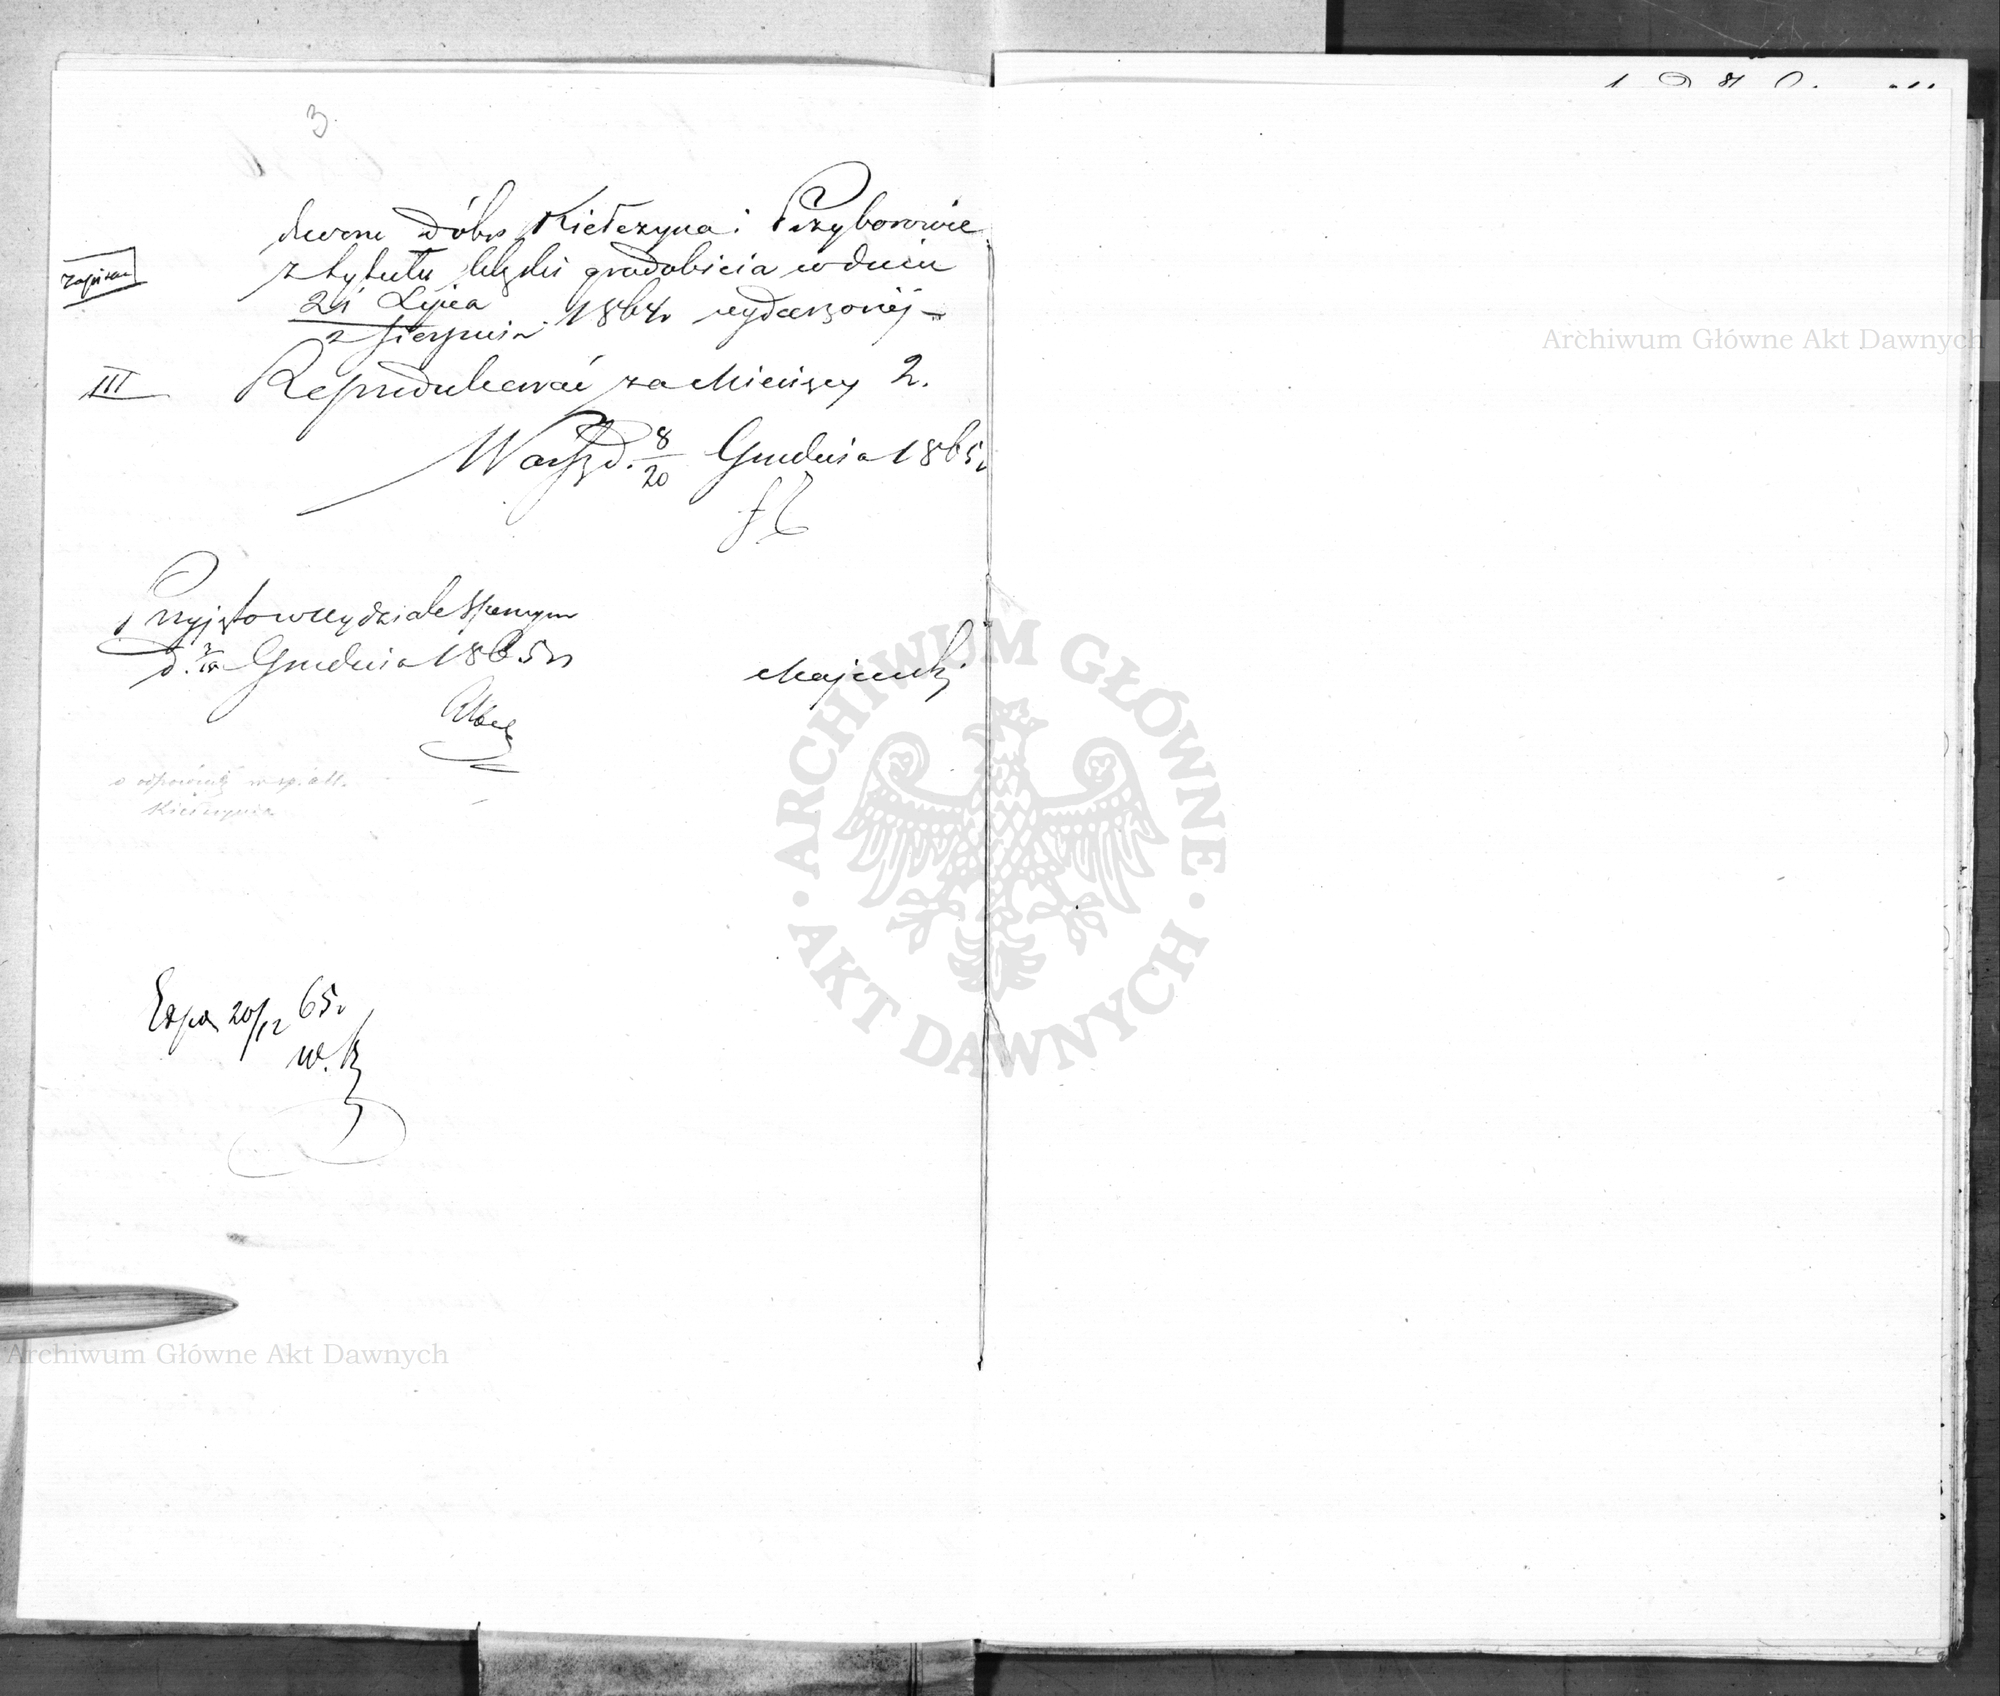 3.
dworu Dóbr Kiełczyna i Przyborowie
zapisano
z tytułu klęski gradobicia w dniu
21 Lipca
2 Sierpnia 1864r wydarzonéj -
III Reprodukować za Miesięcy 2.
Warsz d. 8/20 Grudnia 1865r
Przyjęto w Wydziale Skarnym
d. Grudnia 1865r
Majewski
o odpowiedź w sp. att.
Kiełczynia
Exped 20/12 65r
w. K
Archiwum Główne Akt Dawnych
ARCHIWUM GŁÓWNE
AKT DAWNYCH
Archiwum Główne Akt Dawnych